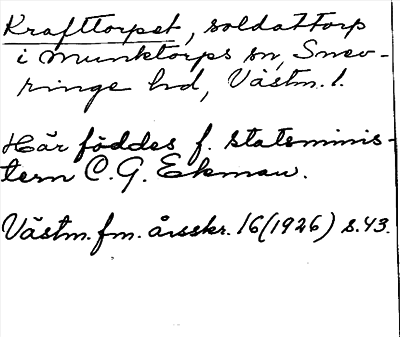 Krafttorpet, soldattorp
i Munktorps sn, Snev-
ringe hd, Västm. l.
Här föddes f. statsminis-
tern C. G. Ekman.
Västm. fm. årsskr. 16 (1926) s. 43.